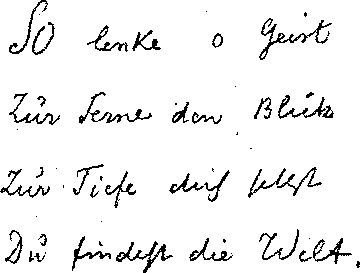 So lenke o Geist
Zur Ferne den Blick
Zur Tiefe dich selbst
Du findest die Welt.